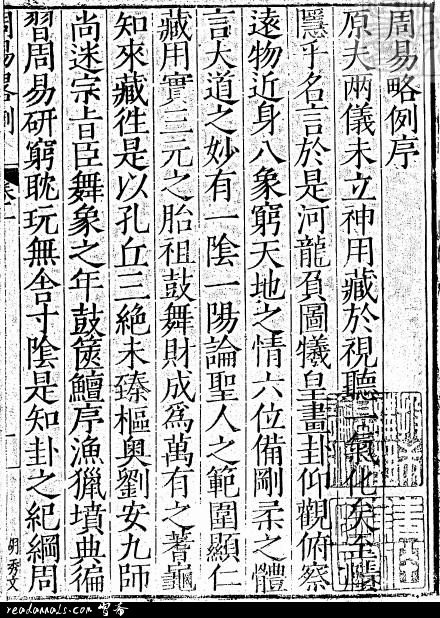 周易略例序
原夫兩儀未立神用藏於視聽一氣化矣至賾
隱乎名言於是河龍負圖犧皇畫卦仰觀俯察
遠物近身八象窮天地之情六位備剛柔之體
言大道之妙有一陰一陽論聖人之範圍顯仁
藏用實三元之胎祖鼓舞財成為萬有之蓍龜
知來藏徃是以孔丘三絕未臻樞奧劉安九師
尚迷宗旨臣舞象之年鼓篋鱣序漁獵墳典徧
習周易研窮耽玩無舍寸陰是知卦之紀綱周
周易略例
readannals.com